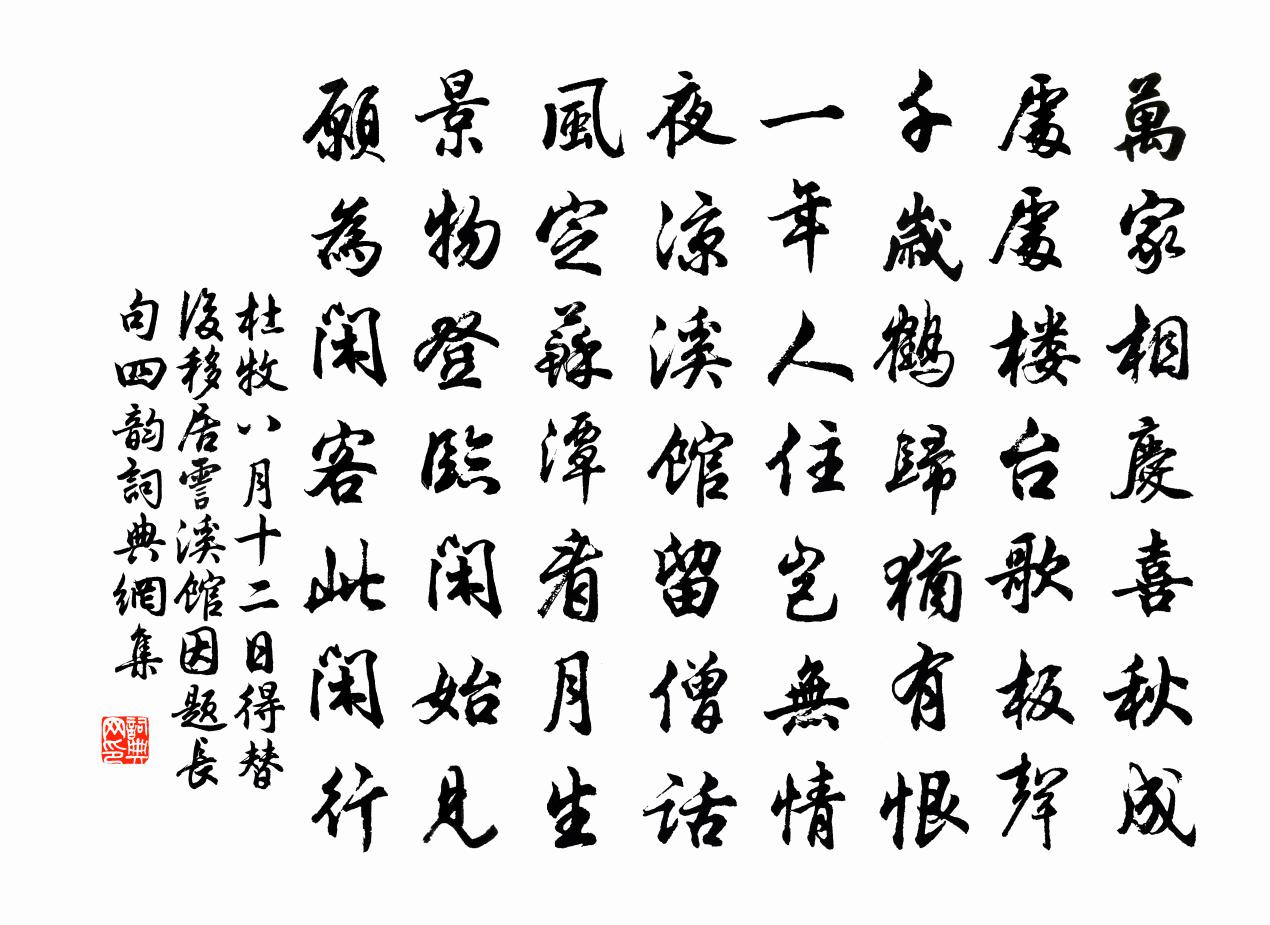 萬家相慶喜秋成
處處楼台歌板聲
千歲鶴歸猶有恨
一年人住豈無情
夜涼溪館留僧話
風定蘇潭看月生
景物登臨閑始見
願為閑客此閑行
杜牧八月十二日得替
後移居霅溪館因題長
句四韵詞典網集
詞典
网印